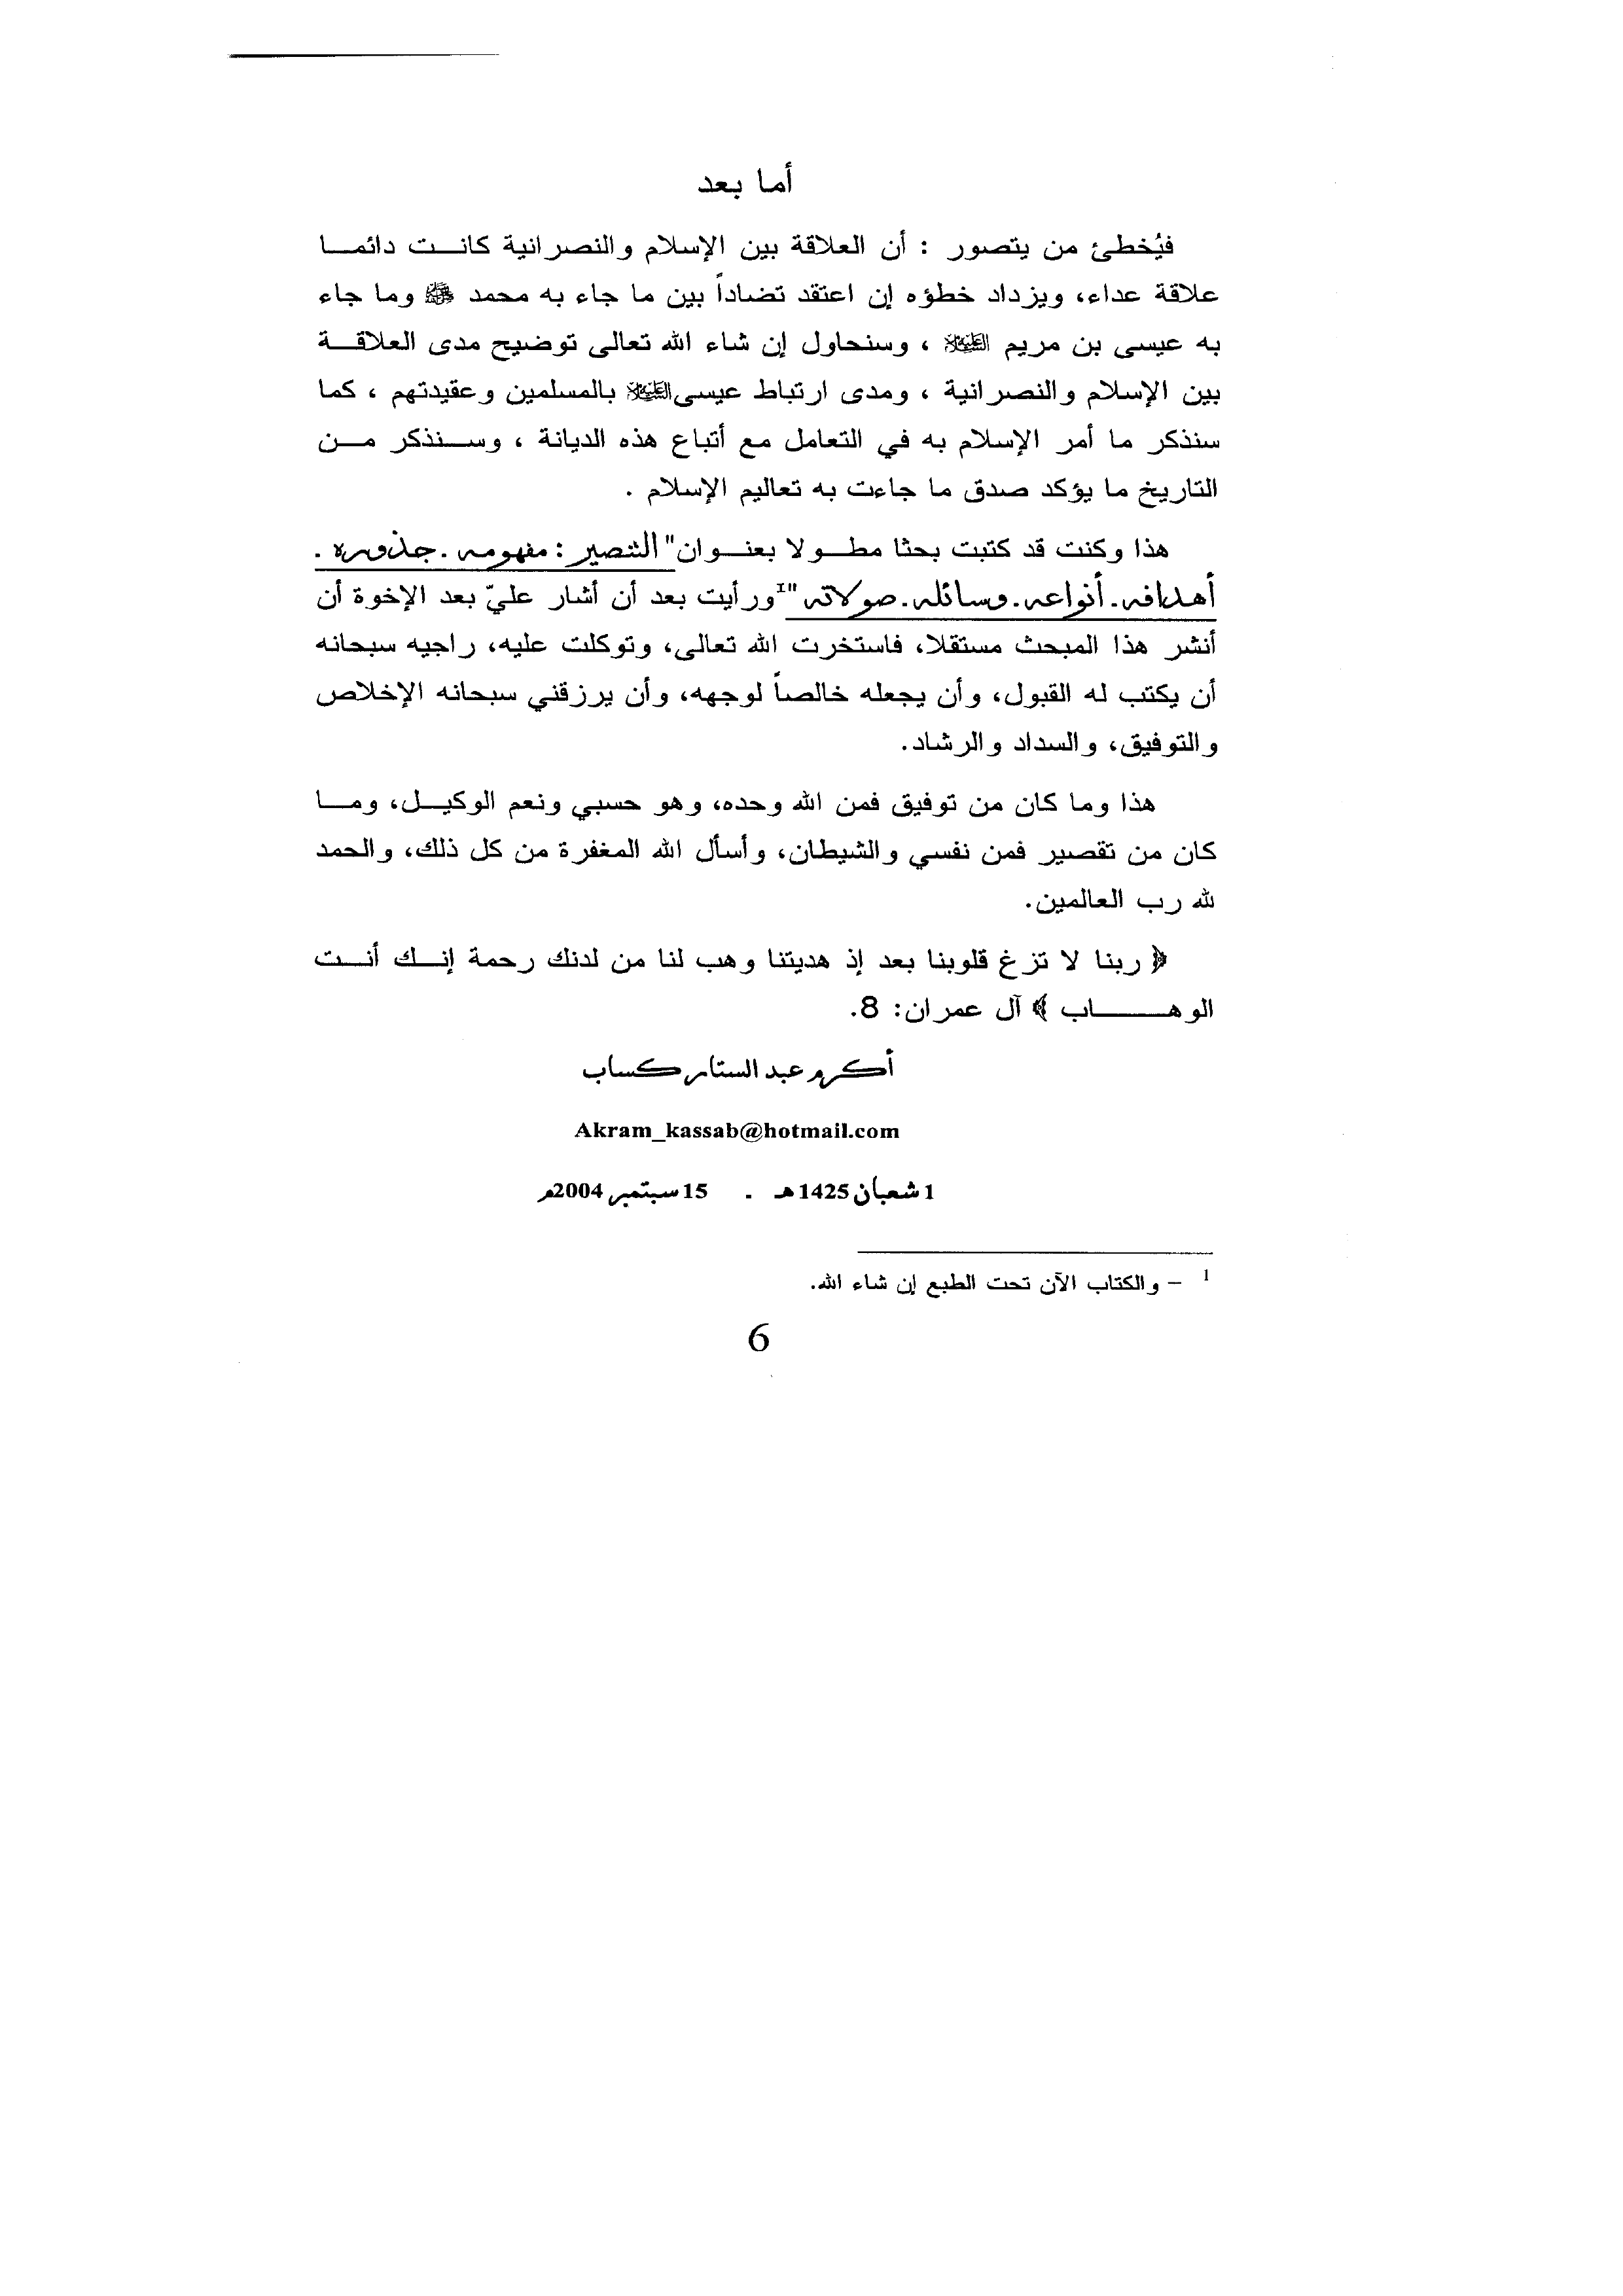 أما بعد
فيُخطئ من يتصور : أن العلاقة بين الإسلام والنصرانية كانت دائما
علاقة عداء، ويزداد خطؤه إن اعتقد تضاداً بين ما جاء به محمد ﷺ وما جاء
به عيسى بن مريم العليه السلام ، وسنحاول إن شاء الله تعالى توضيح مدى العلاقة
بين الإسلام والنصرانية ، ومدى ارتباط عيسى العليه السلام بالمسلمين وعقيدتهم ، كما
سنذكر ما أمر الإسلام به في التعامل مع أتباع هذه الديانة ، وسنذكر من
التاريخ ما يؤكد صدق ما جاءت به تعاليم الإسلام .
هذا وكنت قد كتبت بحثا مطولا بعنوان" التنصير : مفهومه . جذوره .
أهدافه . أنواعه . وسائله . صولاته "1ورأيت بعد أن أشار عليّ بعد الإخوة أن
أنشر هذا المبحث مستقلا، فاستخرت الله تعالى، وتوكلت عليه، راجيه سبحانه
أن يكتب له القبول، وأن يجعله خالصاً لوجهه، وأن يرزقني سبحانه الإخلاص
والتوفيق، والسداد والرشاد.
هذا وما كان من توفيق فمن الله وحده، وهو حسبي ونعم الوكيل، وما
كان من تقصير فمن نفسي والشيطان، وأسأل الله المغفرة من كل ذلك، والحمد
لله رب العالمين.
﴿ ربنا لا تزغ قلوبنا بعد إذ هديتنا وهب لنا من لدنك رحمة إنك أنت
الوهاب ﴾ آل عمران: 8.
أكرم عبد الستار كساب
Akram_kassab@hotmail.com
1 شعبان 1425هـ . 15 سبتمبر 2004م
1 – والكتاب الآن تحت الطبع إن شاء الله.
6